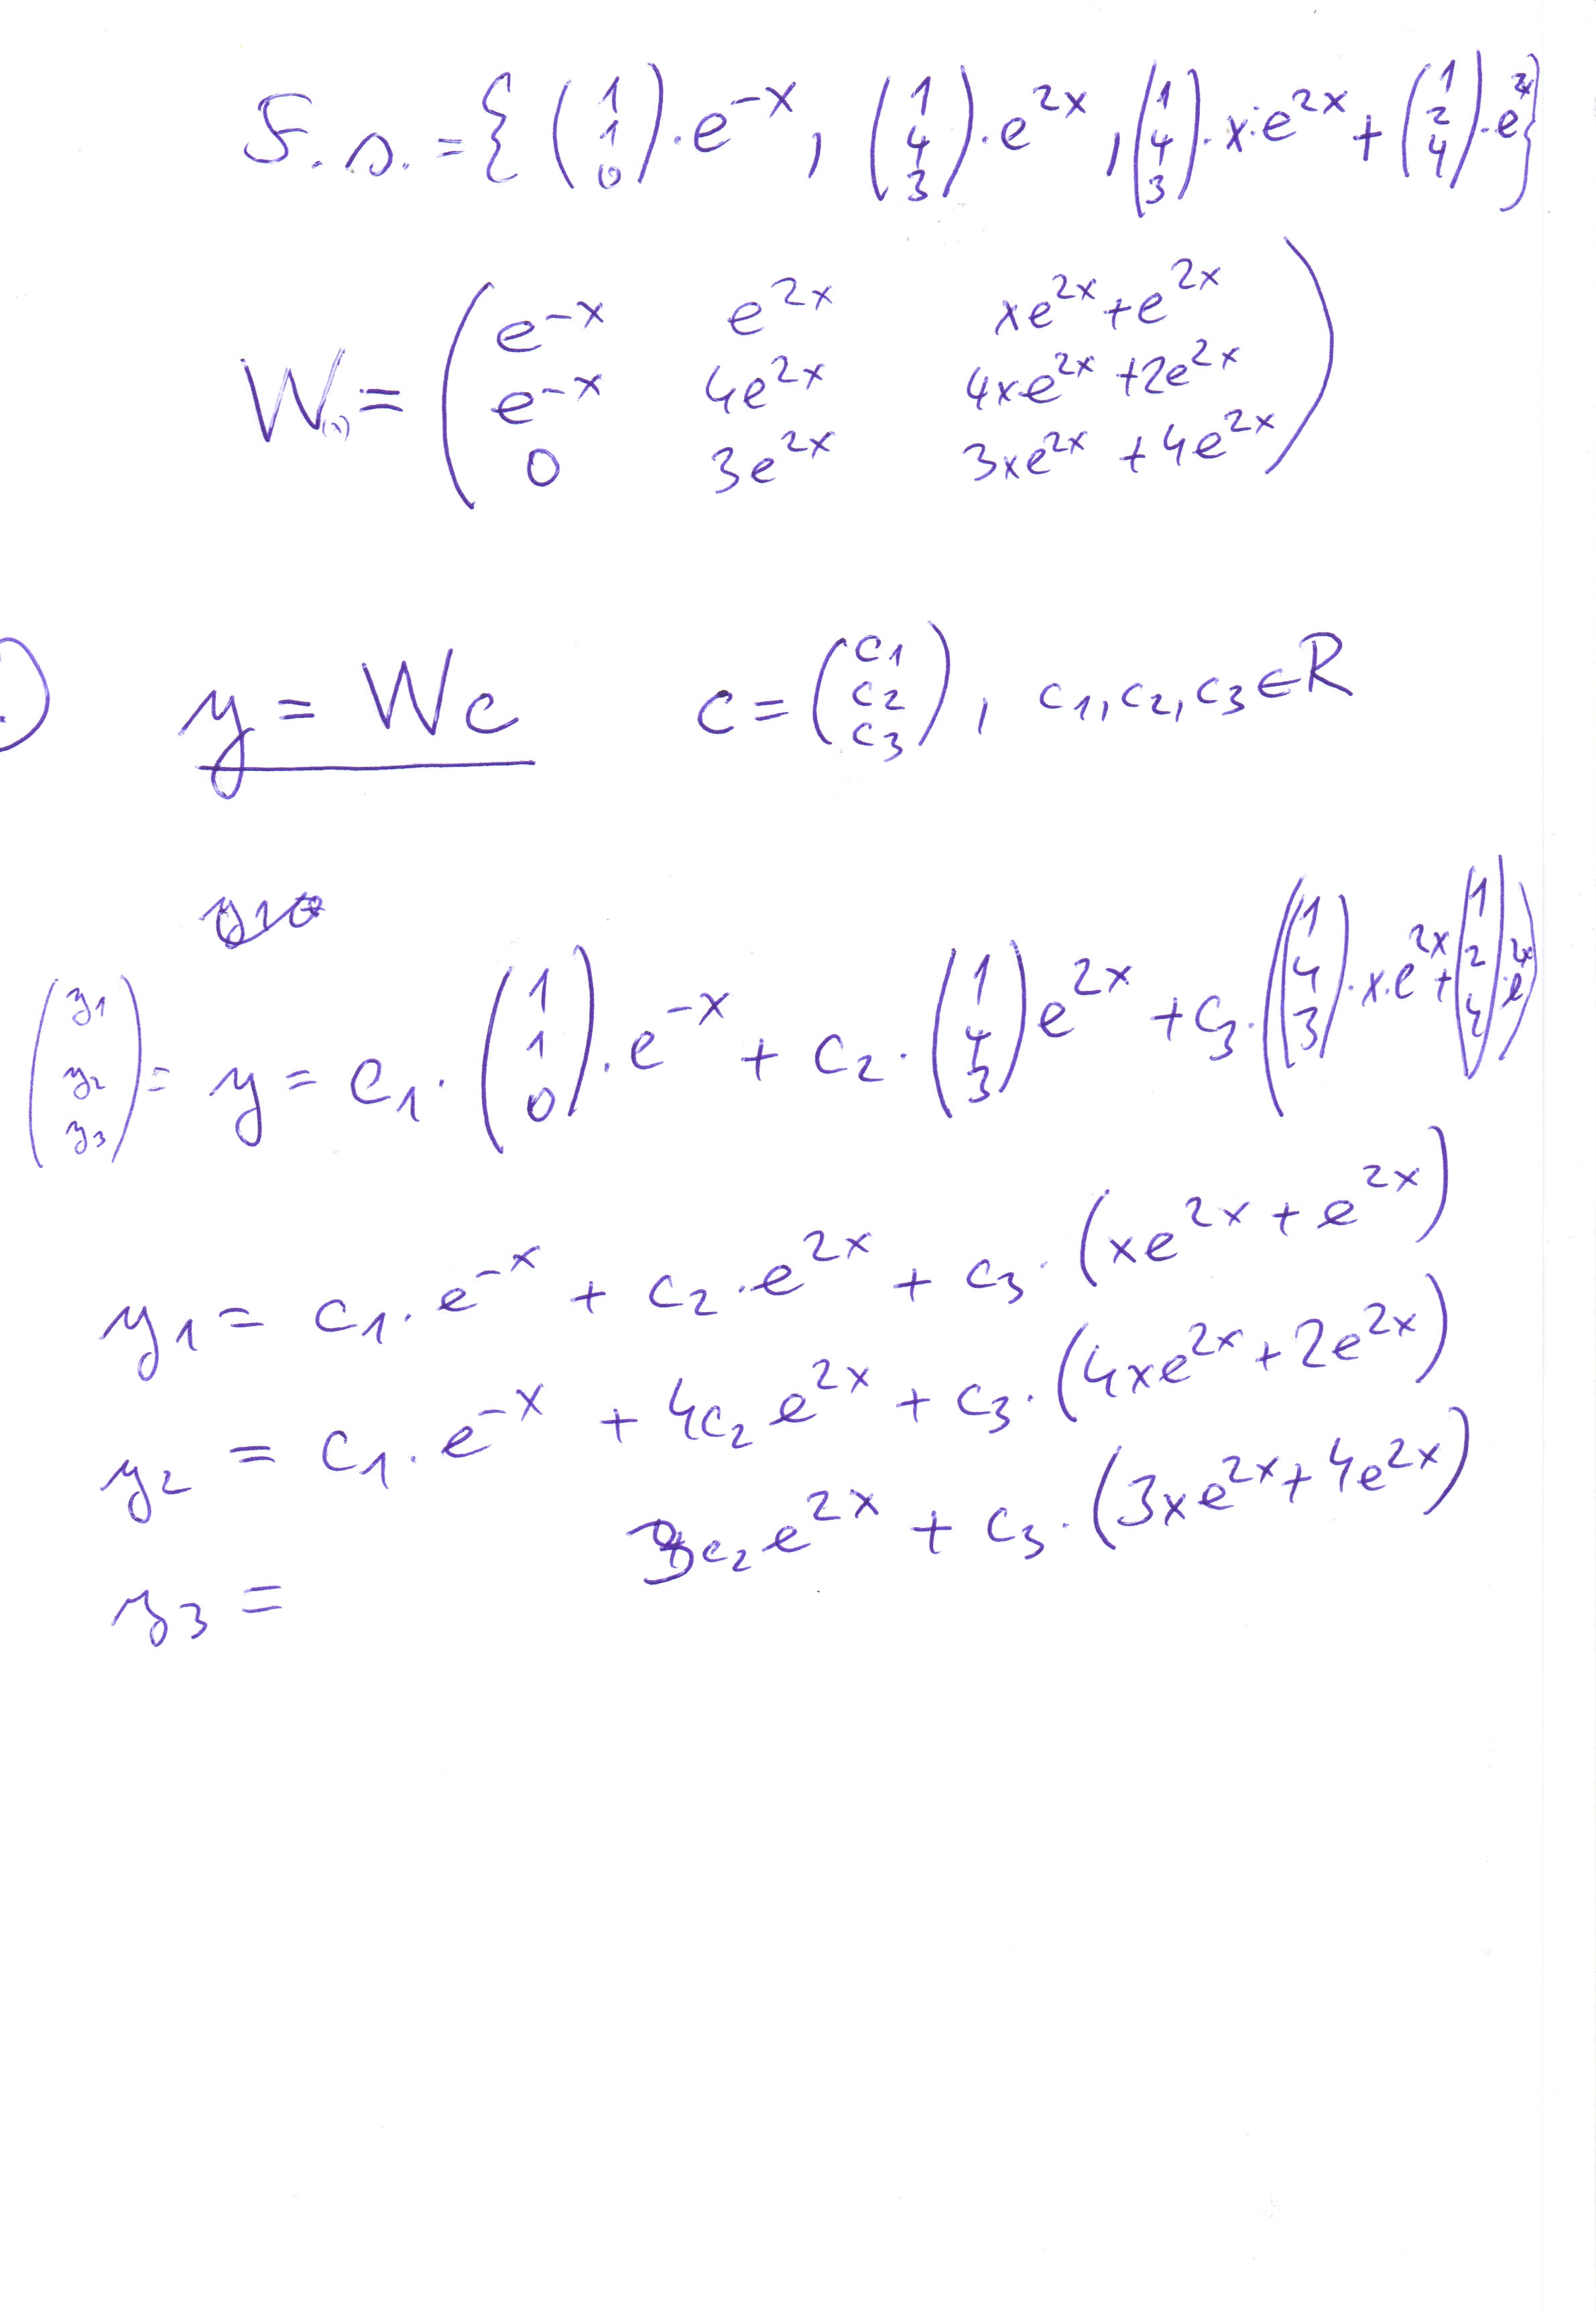 F. s. = { (1 1 0) · e^{-x} , (1 4 3) · e^{2x} , (1 4 3) · x · e^{2x} + (1 2 4) · e^{2x} }
W(x) = ( e^{-x} e^{2x} xe^{2x} + e^{2x}
e^{-x} 4e^{2x} 4xe^{2x} + 2e^{2x}
0 3e^{2x} 3xe^{2x} + 4e^{2x} )
.) y = Wc c = (c1 c2 c3) , c1, c2, c3 ∈ R
(y1 y2 y3) = y = c1 · (1 1 0) · e^{-x} + c2 · (1 4 3) e^{2x} + c3 · ((1 4 3) · x · e^{2x} + (1 2 4) · e^{2x})
y1 = c1 · e^{-x} + c2 · e^{2x} + c3 · (xe^{2x} + e^{2x})
y2 = c1 · e^{-x} + 4c2 e^{2x} + c3 · (4xe^{2x} + 2e^{2x})
y3 = 3c2 e^{2x} + c3 · (3xe^{2x} + 4e^{2x})